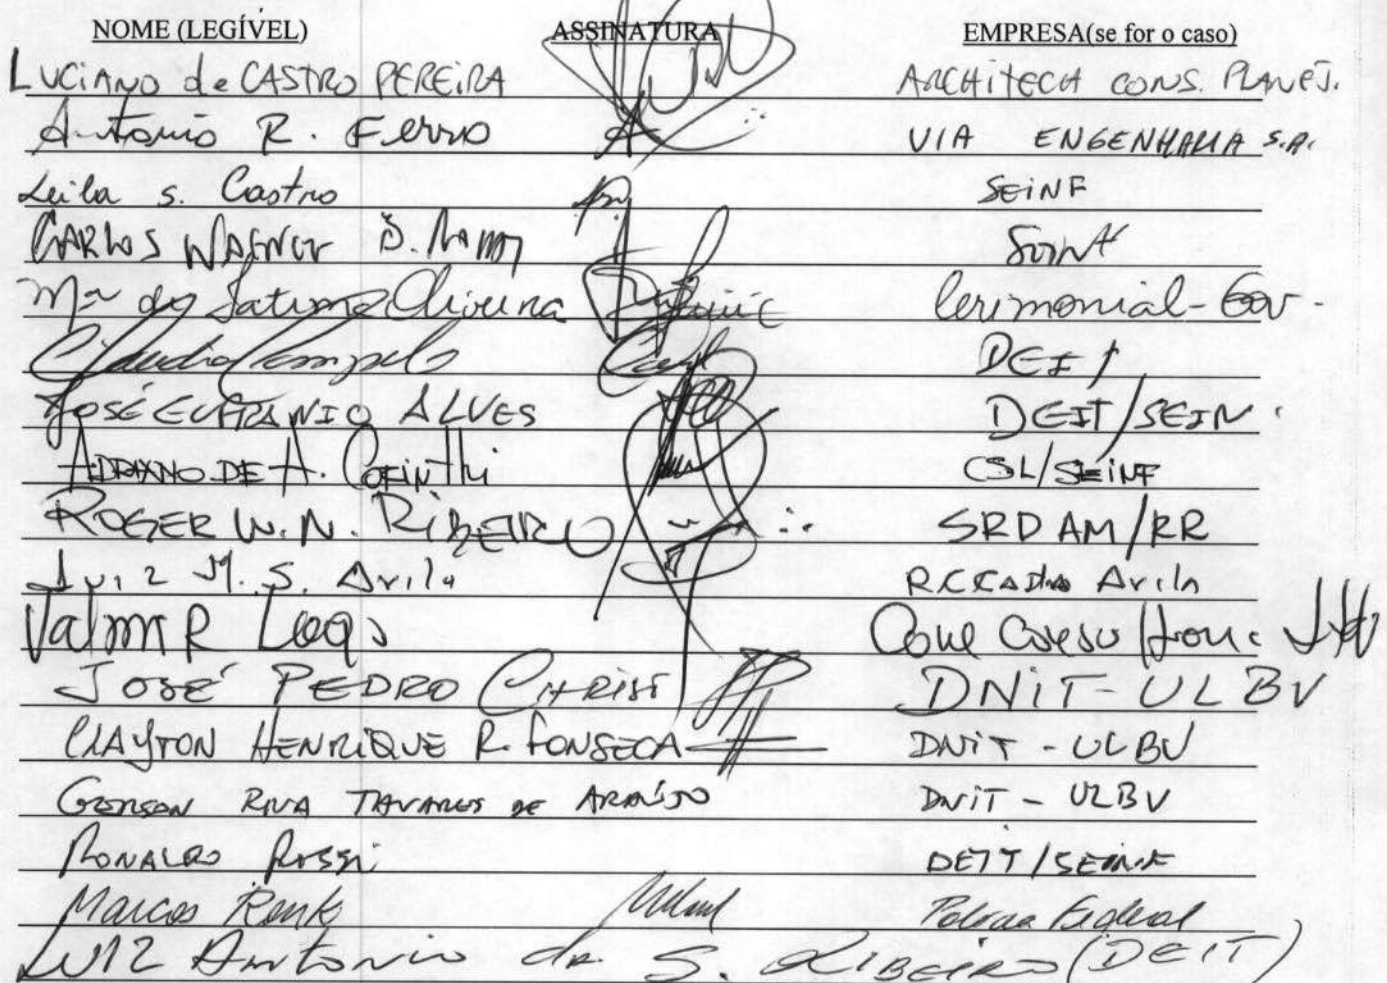 NOME (LEGÍVEL) ASSINATURA EMPRESA(se for o caso)
LUCIANO de CASTRO PEREIRA ARCHITECH CONS. PLANEJ.
Antonio R. Ferro VIA ENGENHARIA S.A.
Leila S. Castro SEINF
CARLOS WAGNER
Mª de Fatima Oliveira Cerimonial-Gov.
Claudio Campelo DEIT
JOSÉ EUFRANIO ALVES DEIT/SEIN
ADRIANO DE A. Corinthi CSL/SEINF
ROGER W. N. RIBEIRO SRD AM/RR
Luiz M. S. Avila Avila
ValmiR
JOSÉ PEDRO CHRIST DNIT-ULBV
CLAYTON HENRIQUE R. FONSECA DNIT - ULBV
GERSON RIVA TAVARES DE ARAÚJO DNIT - ULBV
RONALDO ROSSI DEIT/SEINF
Marcos Policia Federal
LUIZ Antonio da S. RIBEIRO (DEIT)